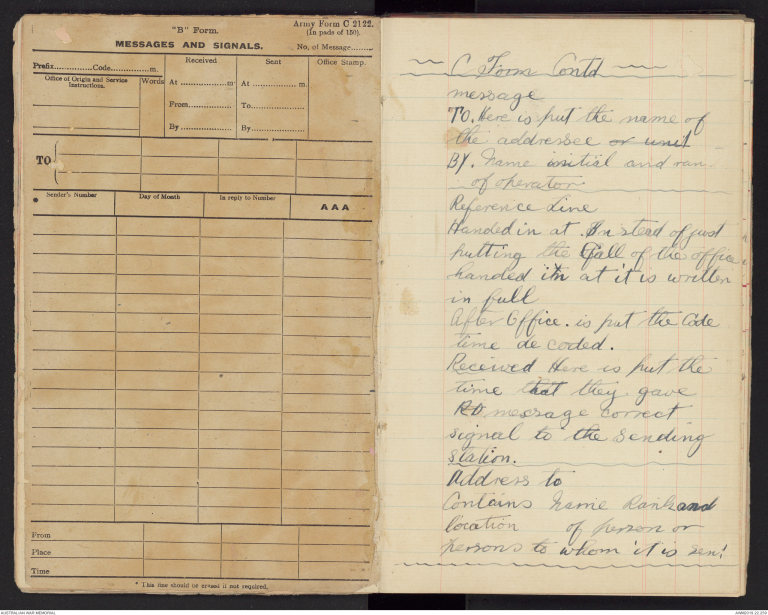 "B" Form.
Army Form C 2122.
(In pads of 150).
MESSAGES AND SIGNALS.
No. of Message........
Prefix...............Code...............m.
Words
Received
Sent
Office Stamp.
Office of Origin and Service
Instructions.
At ..................m.
At ..................m.
From..................
To..................
By..................
By..................
TO
Sender's Number
Day of Month
In reply to Number
AAA
From
Place
Time
* This line should be erased if not required.
C Form Contd
message
TO. Here is put the name of
the addressee or unit
BY. Name initial and ran
of operator
Reference Line
Handed in at. In stead of just
putting the Call of the office
handed itn at it is written
in full
After Office. is put the Code
time de coded.
Received Here is put the
time that they gave
RD message correct
signal to the sending
station.
Address to
Contains Name Rank and
location of person or
persons to whom it is sent
AUSTRALIAN WAR MEMORIAL